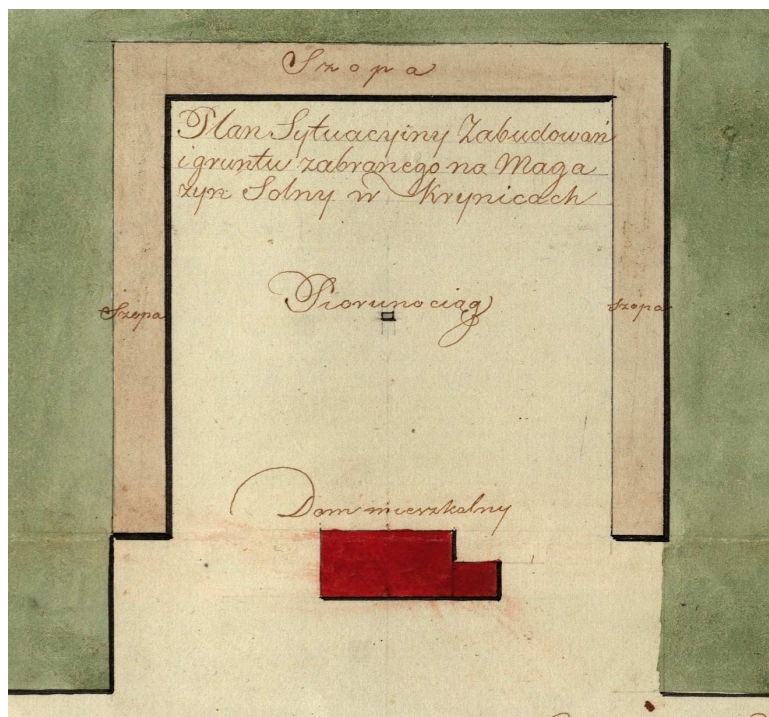 Szopa
Plan Sytuacyiny Zabudowań
i gruntu zabranego na Maga
zyn Solny w Krynicach
Piorunociąg
Szopa
Szopa
Dom mieszkalny